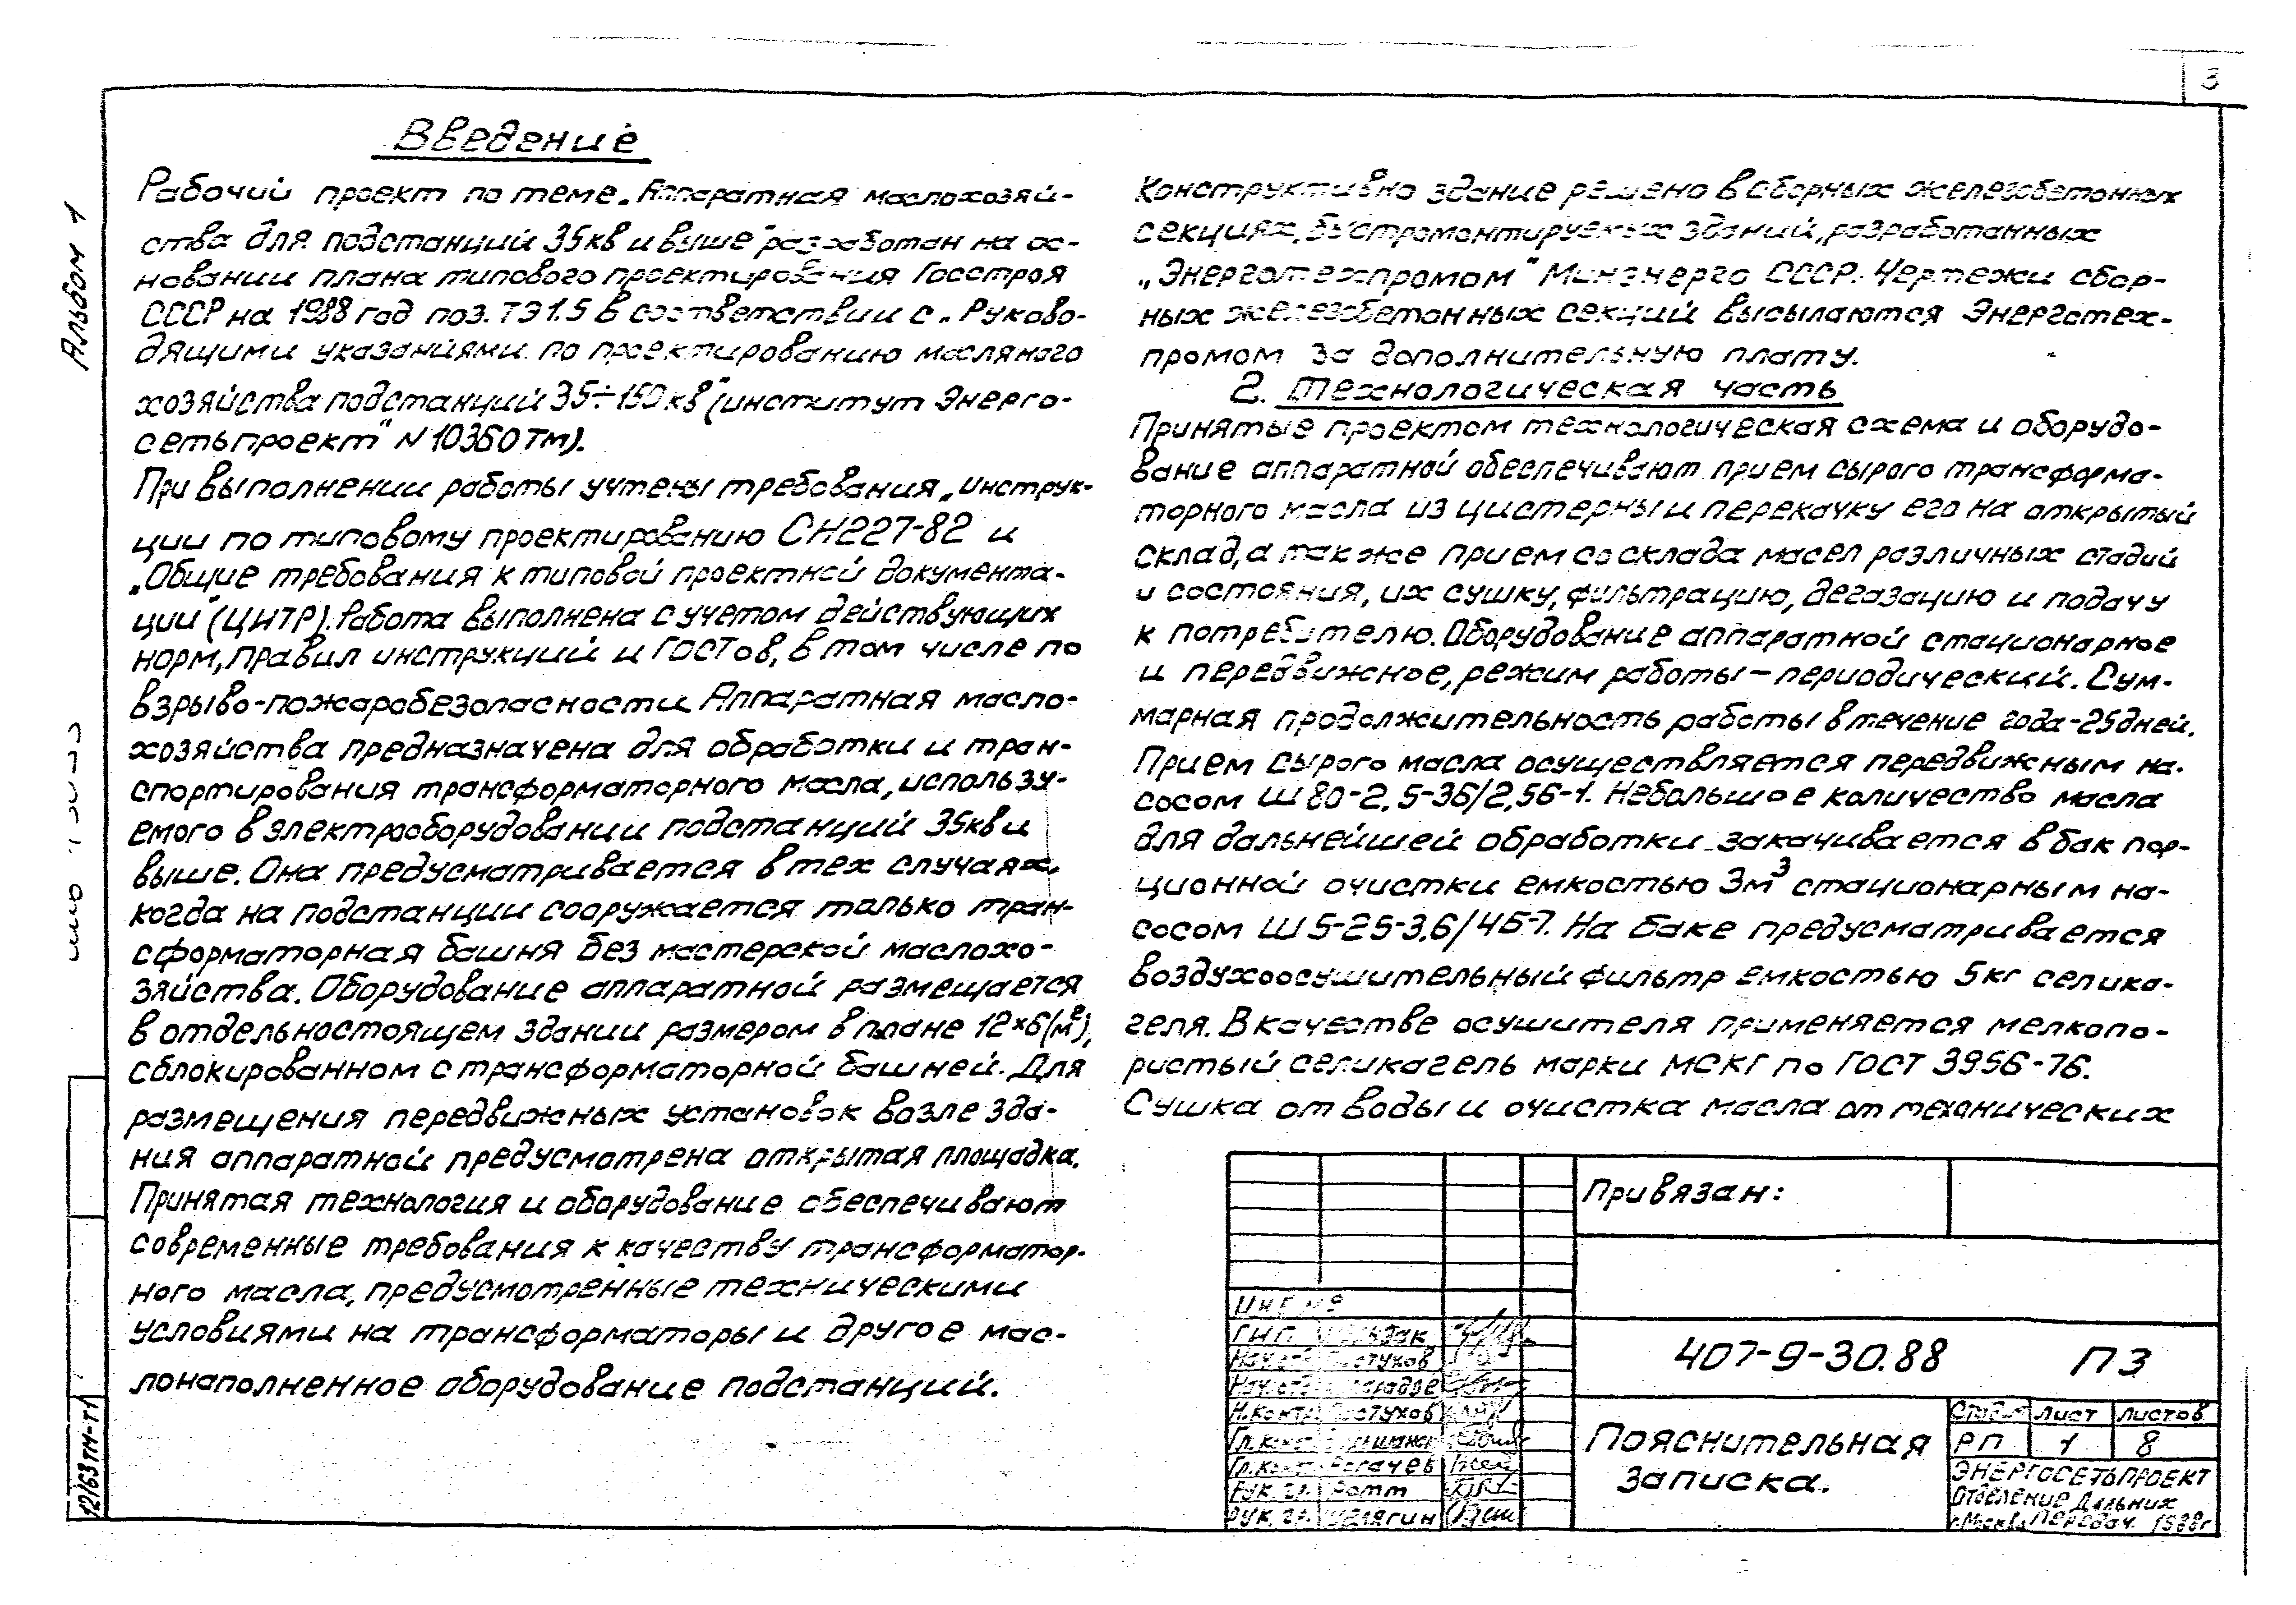 3
Альбом 1
Введение
Рабочий проект по теме „Аппаратная маслохозяй-
ства для подстанций 35кв и выше" разработан на ос-
новании плана типового проектирования Госстроя
СССР на 1988 год поз. ТЭ1.5 в соответствии с „Руково-
дящими указаниями по проектированию масляного
хозяйства подстанций 35÷150кв" (институт Энерго-
сетьпроект" N 10350тм).
При выполнении работы учтены требования „Инструк-
ции по типовому проектированию СН227-82 и
„Общие требования к типовой проектной документа-
ции" (ЦИТР). Работа выполнена с учетом действующих
норм, правил инструкций и ГОСТов, в том числе по
взрыво-пожаробезопасности. Аппаратная масло-
хозяйства предназначена для обработки и тран-
спортирования трансформаторного масла, использу-
емого в электрооборудовании подстанций 35кв и
выше. Она предусматривается в тех случаях,
когда на подстанции сооружается только тран-
сформаторная башня без мастерской маслохо-
зяйства. Оборудование аппаратной размещается
в отдельностоящем здании размером в плане 12×6(м²),
сблокированном с трансформаторной башней. Для
размещения передвижных установок возле зда-
ния аппаратной предусмотрена открытая площадка.
Принятая технология и оборудование обеспечивают
современные требования к качеству трансформатор-
ного масла, предусмотренные техническими
условиями на трансформаторы и другое мас-
лонаполненное оборудование подстанций.
Конструктивно здание решено в сборных железобетонных
секциях, быстромонтируемых зданий, разработанных
„Энерготехпромом" Минэнерго СССР. Чертежи сбор-
ных железобетонных секций высылаются Энерготех-
промом за дополнительную плату.
2. Технологическая часть
Принятые проектом технологическая схема и оборудо-
вание аппаратной обеспечивают прием сырого трансформа-
торного масла из цистерны и перекачку его на открытый
склад, а также прием со склада масел различных стадий
и состояния, их сушку, фильтрацию, дегазацию и подачу
к потребителю. Оборудование аппаратной стационарное
и передвижное, режим работы – периодический. Сум-
марная продолжительность работы в течение года-25дней.
Прием сырого масла осуществляется передвижным на-
сосом Ш 80-2,5-36/2,5б-1. Небольшое количество масла
для дальнейшей обработки закачивается в бак пор-
ционной очистки емкостью 3м³ стационарным на-
сосом Ш5-25-3,6/4Б-7. На баке предусматривается
воздухоосушительный фильтр емкостью 5кг селика-
геля. В качестве осушителя применяется мелкопо-
ристый селикагель марки МСКГ по ГОСТ 3956-76.
Сушка от воды и очистка масла от механических
Привязан:
Инв №
ГИП
Пастухов
Н.контр. Пастухов
Рогачев
Рук. гр. Ротт
Рук. гр.
407-9-30.88 ПЗ
Пояснительная
записка.
Стадия Лист Листов
РП 1 8
ЭНЕРГОСЕТЬПРОЕКТ
Отделение Дальних
г.Москва Передач. 1988г
12163тм-т1